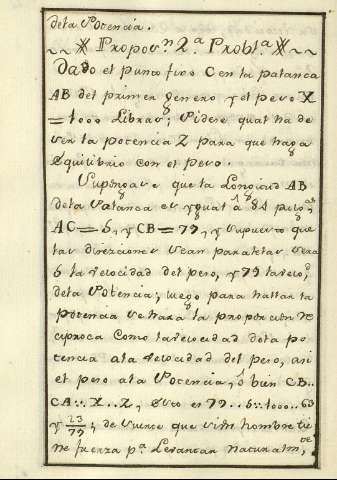 dela Potencia.
Propos.n 2.a Probl.a
Dado el punto fixo C en la palanca
AB del primer genero y el peso X
= 1000 Libras; Pidese qual ha de
ser la potencia Z para que haga
equilibrio con el peso.
Supongase que la Longitud AB
dela Palanca es ygual â 84 pulg.as
AC = 6, y CB = 79, y supuesto que
las direziones sean paralelas sera
6 la velocidad del peso, y 79 la veloc.d
dela Potencia; luego para hallar la
potencia se hara la proporcion re
ciproca Como la velocidad dela po
tencia ala velocidad del peso, asi
el peso ala Potencia, ô bien CB..
CA:: X.. Z, Esto es 79.. 6:: 1000.. 63
y 23/79; de suerte que si un hombre tie
ne fuerza p.a Levantar naturalm.te